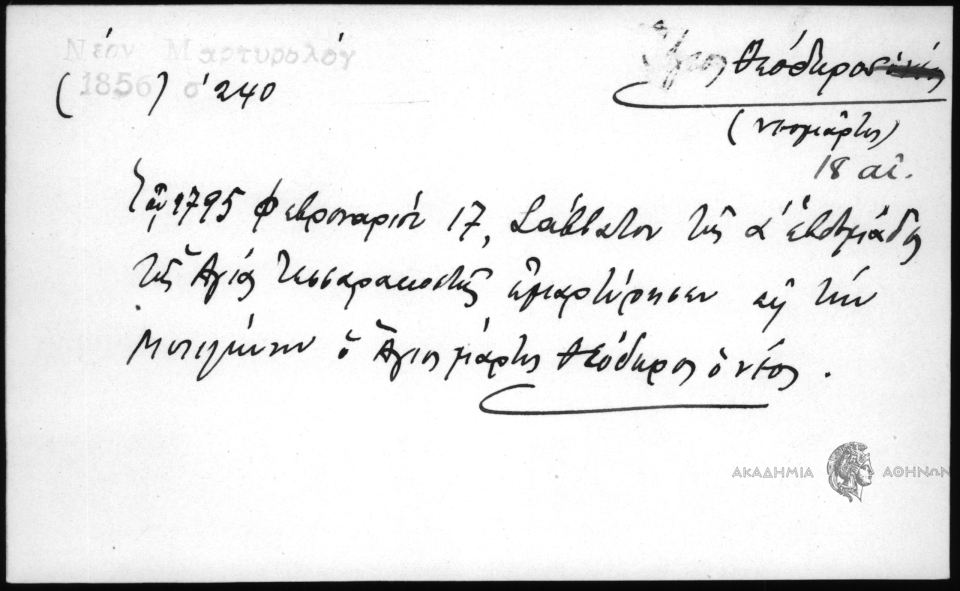 Νέον Μαρτυρολόγ
(1856) σ 240
Άγιος Θεόδωρος ο νέος
(νεομάρτυς)
18 αἰ.
Τῷ 1795 Φεβρουαρίου 17, Σάββατον τῆς α' ἑβδομάδος
τῆς Ἁγίας Τεσσαρακοστῆς ἐμαρτύρησεν εἰς τὴν
Μυτιλήνην ὁ Ἅγιος μάρτυς Θεόδωρος ὁ νέος.
ΑΚΑΔΗΜΙΑ ΑΘΗΝΩΝ